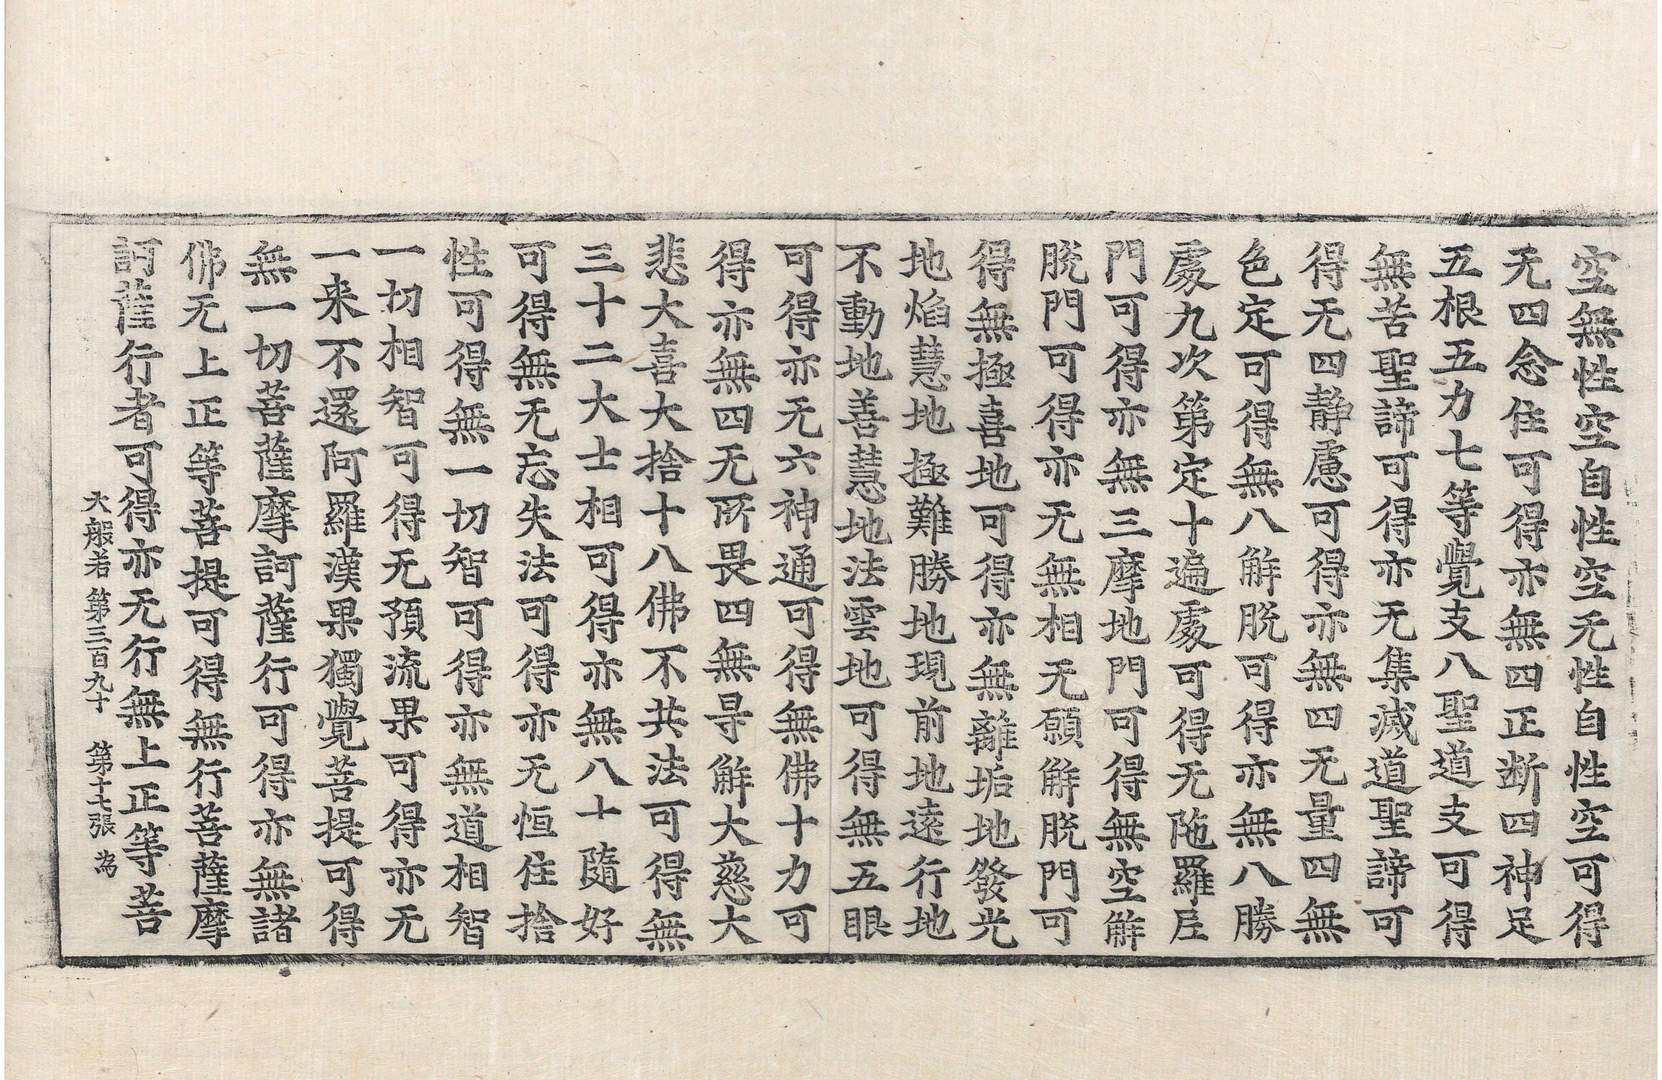 空無性空自性空无性自性空可得
无四念住可得亦無四正断四神足
五根五力七等覺支八聖道支可得
無苦聖諦可得亦无集滅道聖諦可
得无四静慮可得亦無四无量四無
色定可得無八解脱可得亦無八勝
處九次第定十遍處可得无陁羅尼
門可得亦無三摩地門可得無空解
脱門可得亦无無相无願解脱門可
得無極喜地可得亦無離垢地發光
地焰慧地極難勝地現前地遠行地
不動地善慧地法雲地可得無五眼
可得亦无六神通可得無佛十力可
得亦無四无所畏四無㝵解大慈大
悲大喜大捨十八佛不共法可得無
三十二大士相可得亦無八十隨好
可得無无忘失法可得亦无恒住捨
性可得無一切智可得亦無道相智
一切相智可得无預流果可得亦无
一来不還阿羅漢果獨覺菩提可得
無一切菩薩摩訶薩行可得亦無諸
佛无上正等菩提可得無行菩薩摩
訶薩行者可得亦无行無上正等菩
大般若第三百九十 第十七張 為